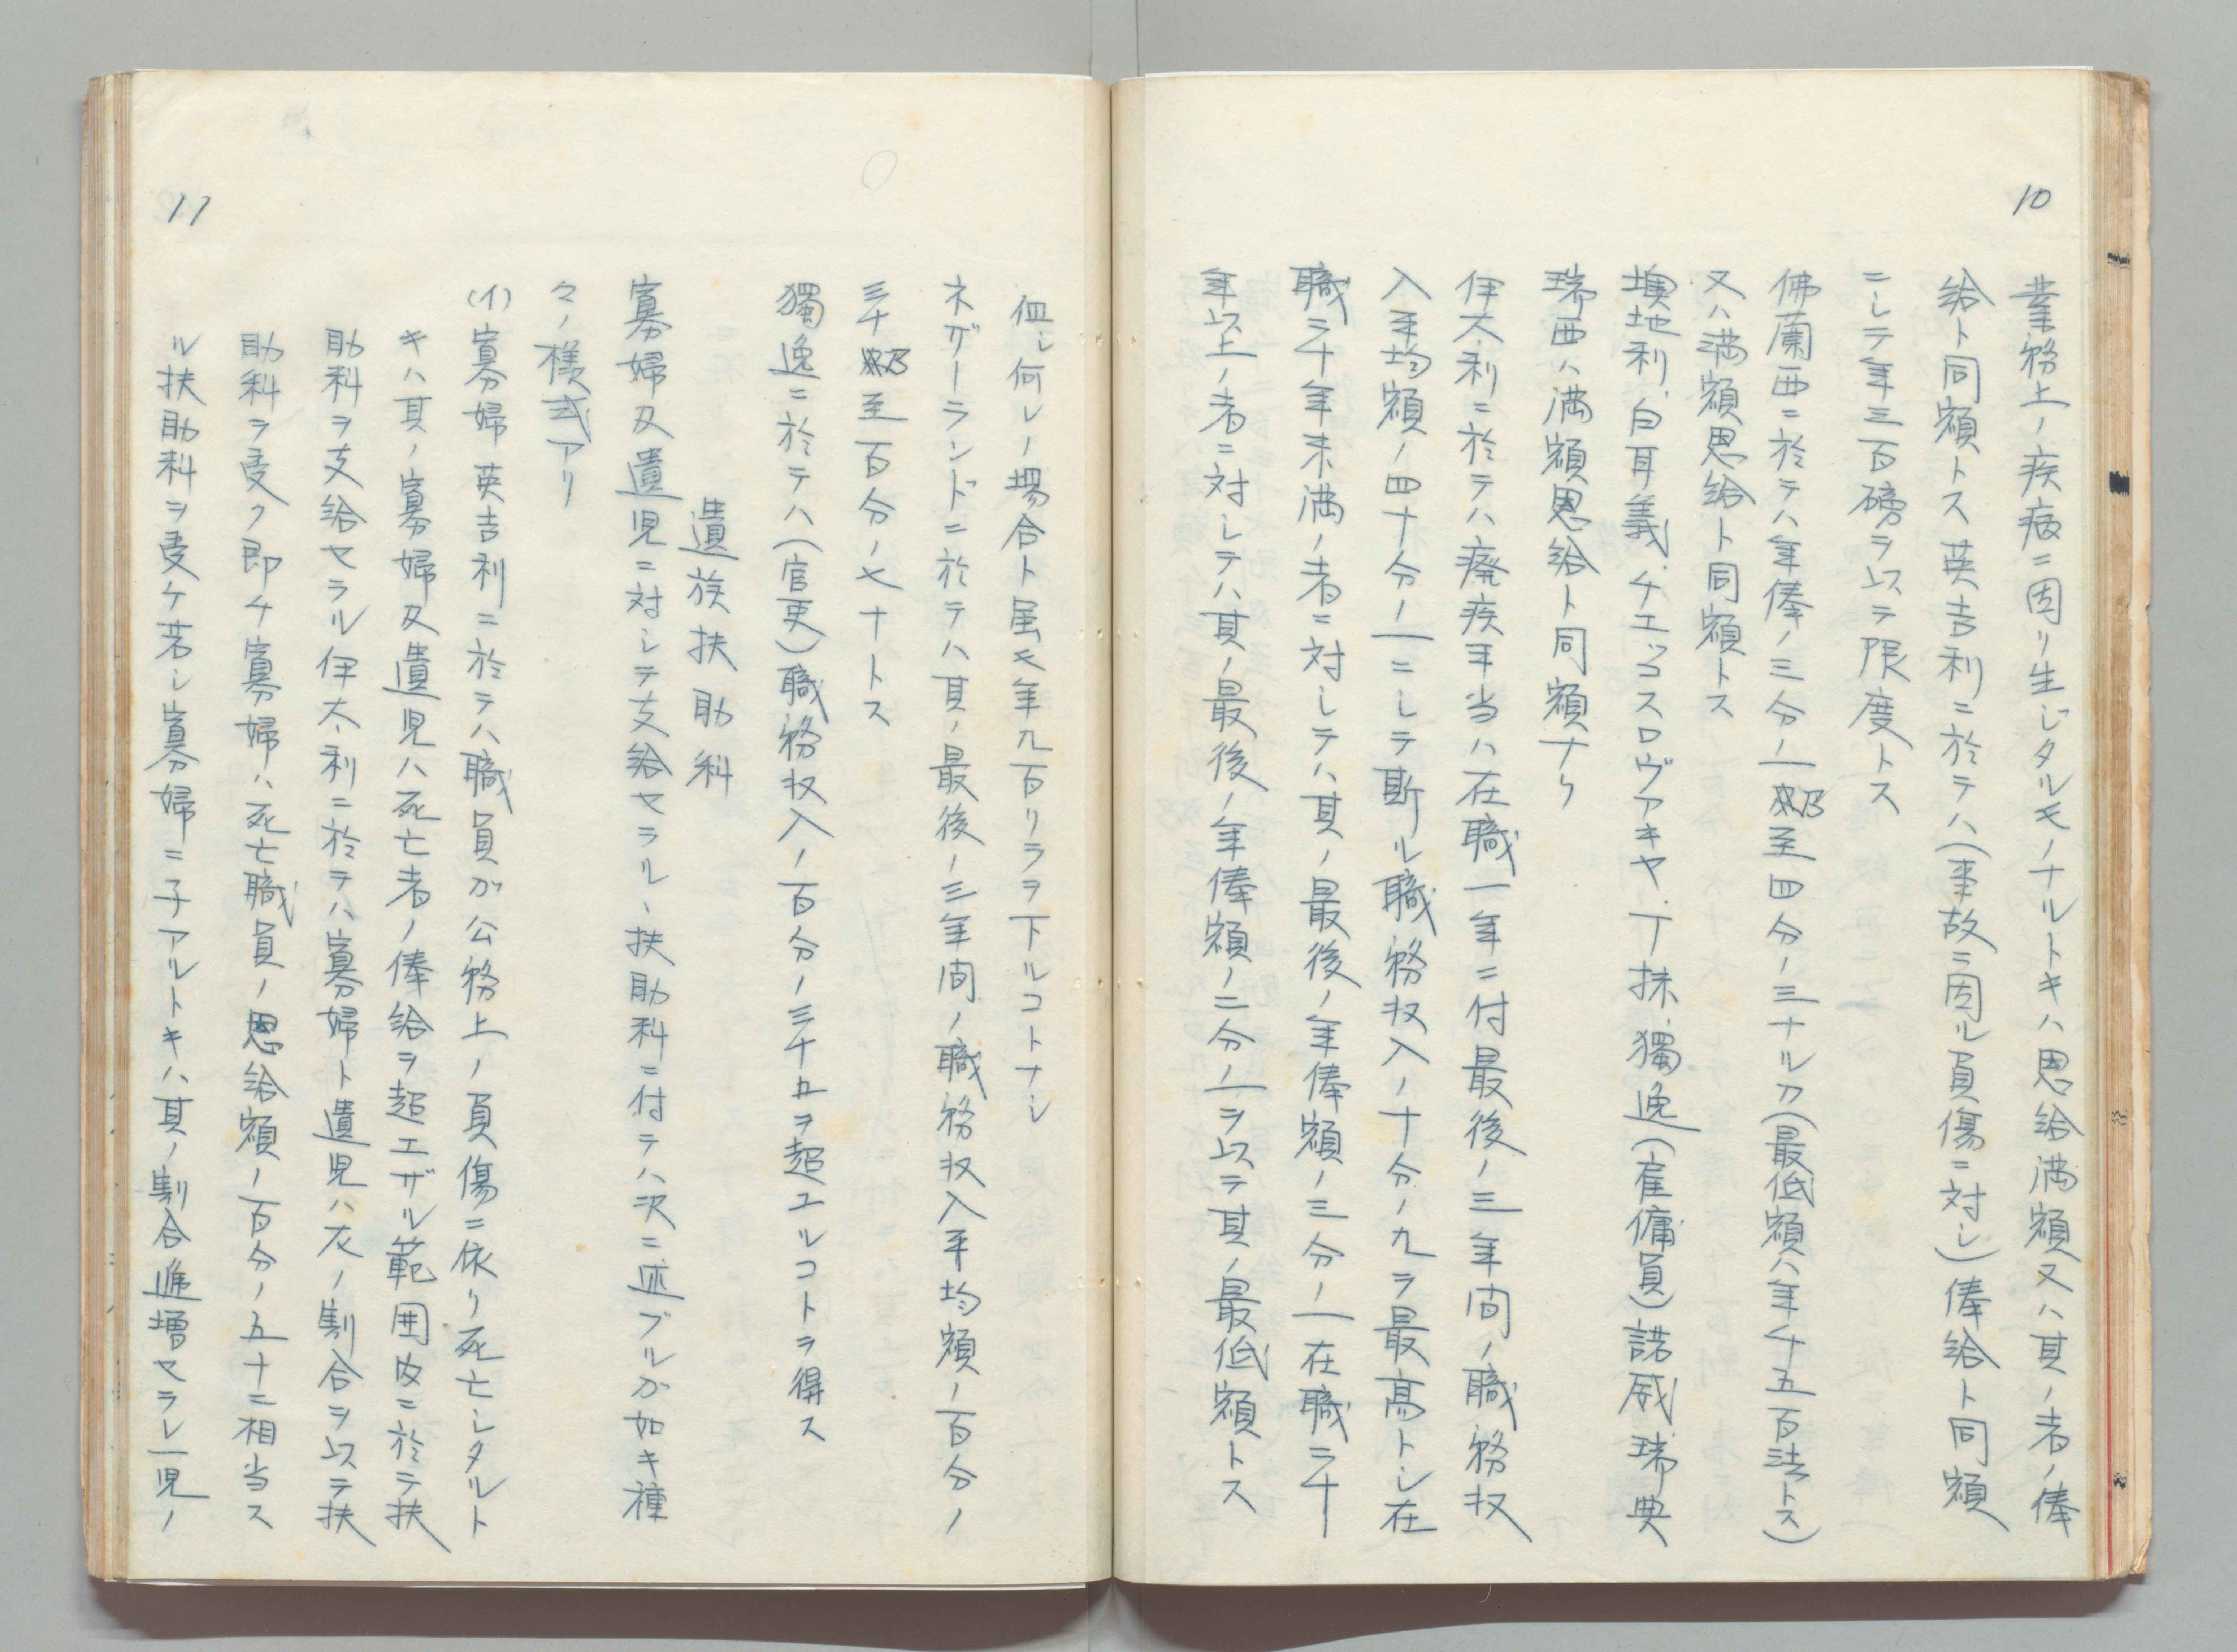 10
業務上ノ疾病ニ因リ生ジタルモノナルトキハ恩給満額又ハ其ノ者ノ俸
給ト同額トス英吉利ニ於テハ(事故ニ因ル負傷ニ対シ)俸給ト同額
ニシテ年三百磅ヲ以テ限度トス
佛蘭西ニ於テハ年俸ノ三分ノ一乃至四分ノ三ナルカ(最低額ハ年千五百法トス)
又ハ満額恩給ト同額トス
墺地利、白耳義、チエッコスロヴアキヤ、丁抹、獨逸(雇傭員)諾威瑞典
瑞西ハ満額恩給ト同額ナリ
伊太利ニ於テハ癈疾手当ハ在職一年ニ付最後ノ三年間ノ職務収
入平均額ノ四十分ノ一ニシテ斯ル職務収入ノ十分ノ九ヲ最高トシ在
職二十年未満ノ者ニ対シテハ其ノ最後ノ年俸額ノ三分ノ一在職二十
年以上ノ者ニ対シテハ其ノ最後ノ年俸額ノ二分ノ一ヲ以テ其ノ最低額トス
11
但シ何レノ場合ト雖モ年九百リラヲ下ルコトナシ
ネザーランドニ於テハ其ノ最後ノ三年間ノ職務収入平均額ノ百分ノ
三十乃至百分ノ七十トス
獨逸ニ於テハ(官吏)職務収入ノ百分ノ三十五ヲ超エルコトヲ得ス
遺族扶助料
寡婦及遺児ニ対シテ支給セラルヽ扶助料ニ付テハ次ニ述ブルガ如キ種
々ノ様式アリ
(イ)寡婦 英吉利ニ於テハ職員ガ公務上ノ負傷ニ依リ死亡シタルト
キハ其ノ寡婦及遺児ハ死亡者ノ俸給ヲ超エザル範囲内ニ於テ扶
助料ヲ支給セラル伊太利ニ於テハ寡婦ト遺児ハ左ノ割合ヲ以テ扶
助料ヲ受ク即チ寡婦ハ死亡職員ノ恩給額ノ百分ノ五十ニ相当ス
ル扶助料ヲ受ケ若シ寡婦ニ子アルトキハ其ノ割合逓増セラレ一児ノ